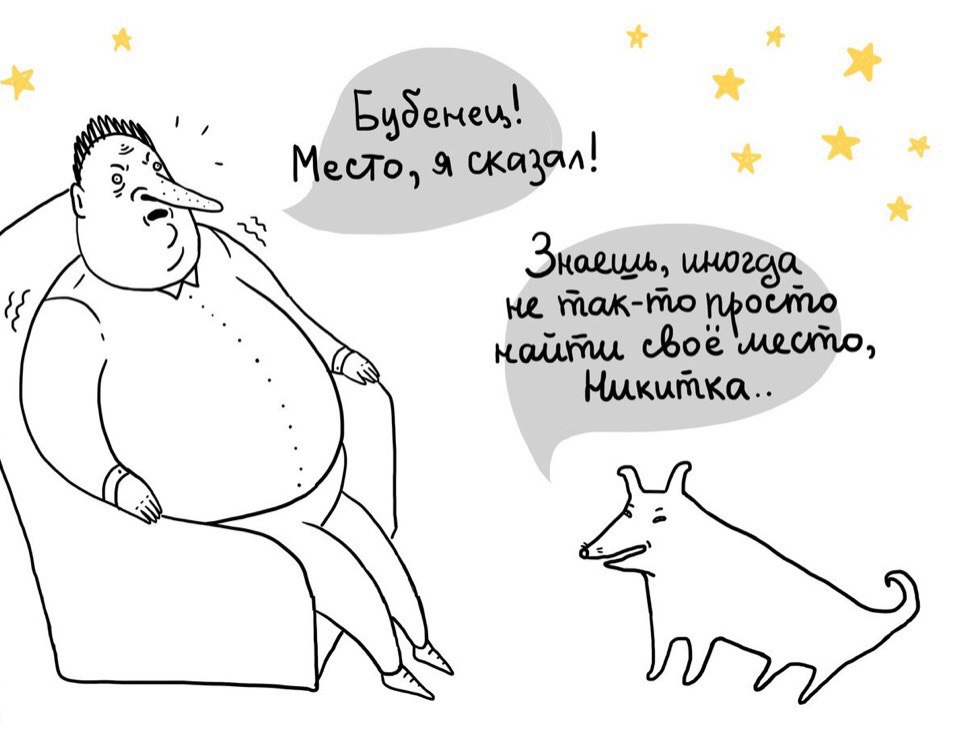 Бубенец!
Место, я сказал!
Знаешь, иногда
не так-то просто
найти своё место,
Никитка..